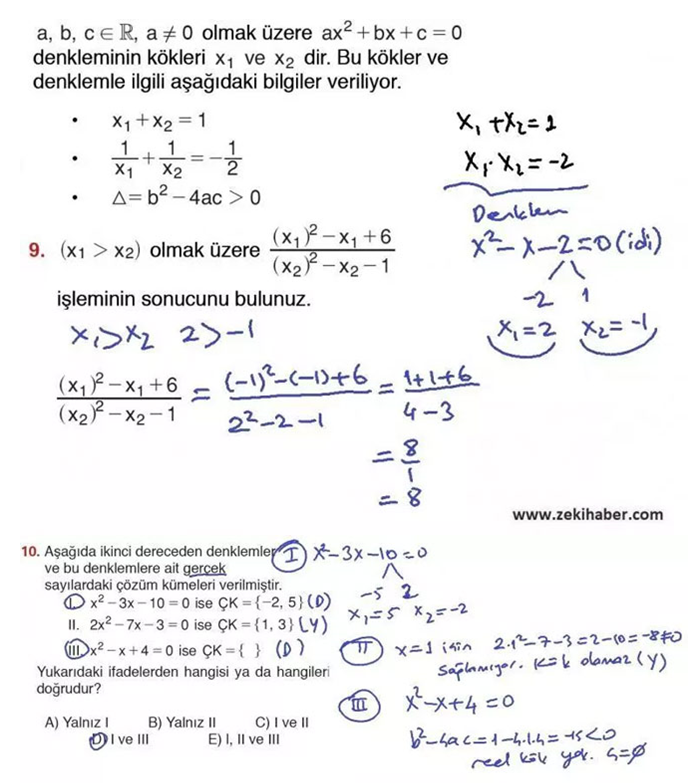 a, b, c ∈ ℝ, a ≠ 0 olmak üzere ax² + bx + c = 0
denkleminin kökleri x₁ ve x₂ dir. Bu kökler ve
denklemle ilgili aşağıdaki bilgiler veriliyor.
• x₁ + x₂ = 1
• 1/x₁ + 1/x₂ = -1/2
• Δ = b² - 4ac > 0
x₁ + x₂ = 1
x₁ · x₂ = -2
Denklem
x² - x - 2 = 0 (idi)
-2 1
x₁ = 2 x₂ = -1
9. (x₁ > x₂) olmak üzere ((x₁)² - x₁ + 6)/((x₂)² - x₂ - 1)
işleminin sonucunu bulunuz.
x₁ > x₂ 2 > -1
((x₁)² - x₁ + 6)/((x₂)² - x₂ - 1) = ((-1)² - (-1) + 6)/(2² - 2 - 1) = (1 + 1 + 6)/(4 - 3)
= 8/1
= 8
www.zekihaber.com
10. Aşağıda ikinci dereceden denklemler
ve bu denklemlere ait gerçek
sayılardaki çözüm kümeleri verilmiştir.
I. x² - 3x - 10 = 0 ise ÇK = {-2, 5} (D)
II. 2x² - 7x - 3 = 0 ise ÇK = {1, 3} (Y)
III. x² - x + 4 = 0 ise ÇK = { } (D)
Yukarıdaki ifadelerden hangisi ya da hangileri
doğrudur?
A) Yalnız I B) Yalnız II C) I ve II
D) I ve III E) I, II ve III
I x² - 3x - 10 = 0
-5 2
x₁ = 5 x₂ = -2
II x = 1 için 2.1² - 7 - 3 = 2 - 10 = -8 ≠ 0
sağlamıyor. Kök olamaz (Y)
III x² - x + 4 = 0
b² - 4ac = 1 - 4.1.4 = -15 < 0
reel kök yok. Ç = ∅